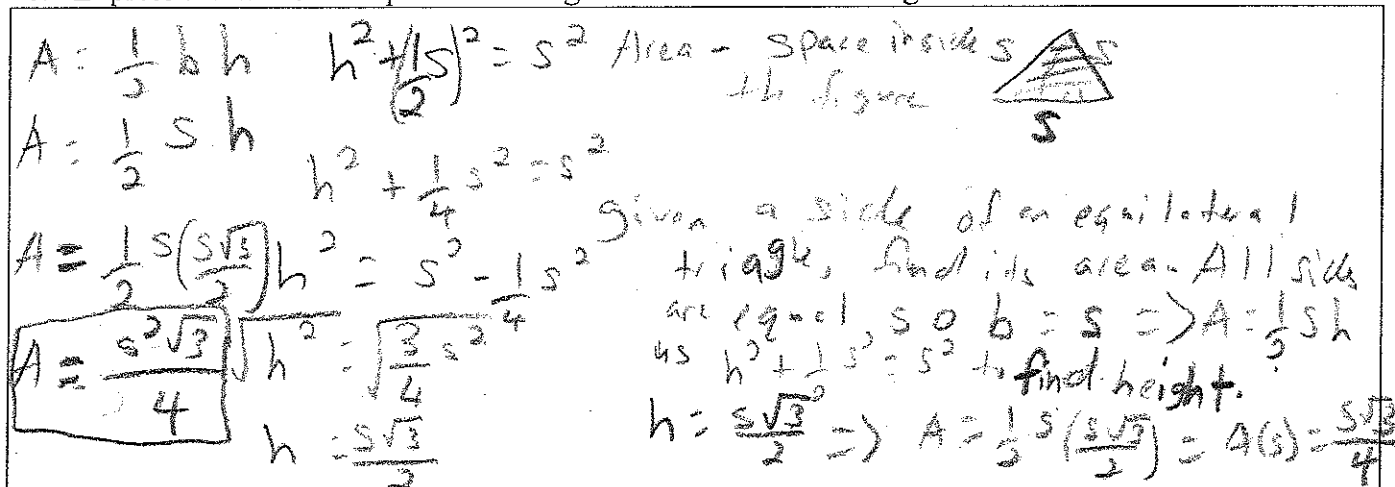 A = 1/2 b h
A = 1/2 s h
A = 1/2 s(s√3/2)
A = s²√3/4
h² + (1/2 s)² = s²
h² + 1/4 s² = s²
h² = s² - 1/4 s²
√h² = √3/4 s²
h = s√3/2
Area - space inside
the figure
s s
s
given a side of an equilateral
triagle, find its area. All sides
are equal, so b = s => A = 1/2 sh
us h² + 1/2 s² = s² to find height.
h = s√3/2 => A = 1/2 s(s√3/2) = A(s) = s√3/4